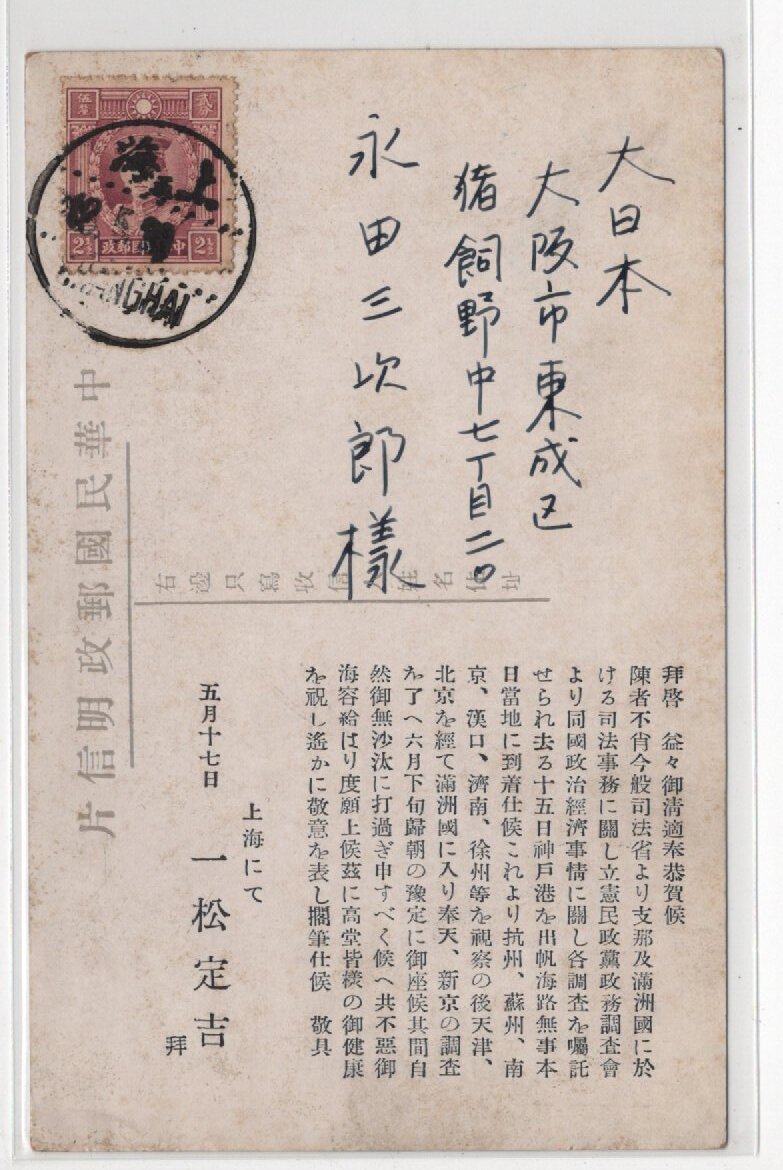 大日本
大阪市東成区
猪飼野中七丁目二〇
永田三次郎様
貳分
伍厘
2½
2½
中華民國郵政
上海
SHANGHAI
中華民國郵政明信片
右邊只寫收信人姓名住址
拜啓　益々御淸適奉恭賀候
陳者不肖今般司法省より支那及滿洲國に於
ける司法事務に關し立憲民政黨政務調査會
より同國政治經濟事情に關し各調査を囑託
せられ去る十五日神戸港を出帆海路無事本
日當地に到着仕候これより抗州、蘇州、南
京、漢口、濟南、徐州等を視察の後天津、
北京を經て滿洲國に入り奉天、新京の調査
を了へ六月下旬歸朝の豫定に御座候其間自
然御無沙汰に打過ぎ申すべく候へ共不惡御
海容給はり度願上候茲に高堂皆樣の御健康
を祝し遙かに敬意を表し擱筆仕候　敬具
五月十七日
上海にて
一松定吉
拜